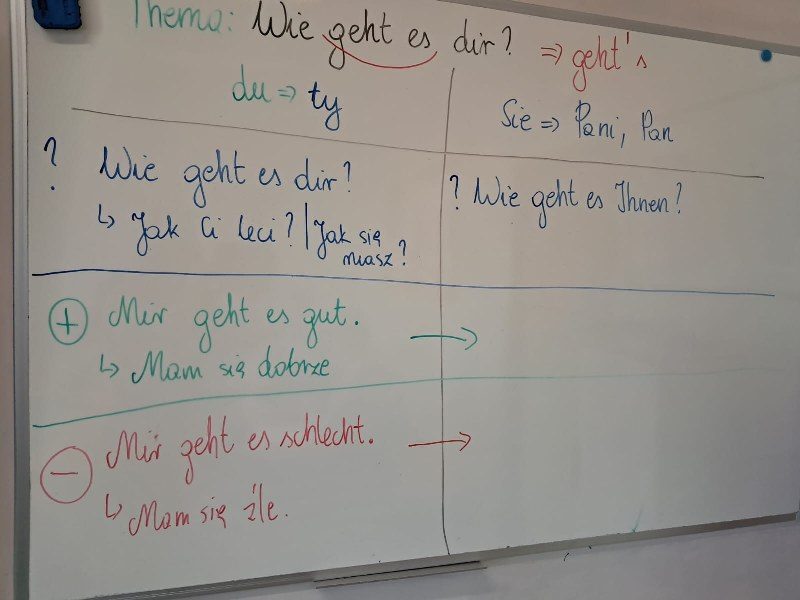 Thema: Wie geht es dir? => geht's
du => ty
Sie => Pani, Pan
? Wie geht es dir?
↳ Jak Ci leci? | Jak się miasz?
? Wie geht es Ihnen?
+ Mir geht es gut. →
↳ Mam się dobrze
- Mir geht es schlecht. →
↳ Mam się źle.